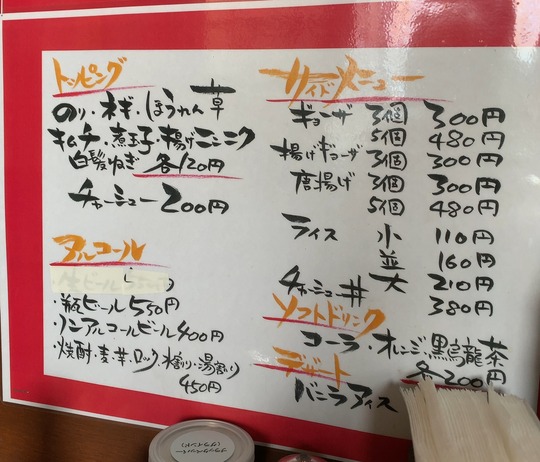 トッピング
のり・ネギ・ほうれん草
キムチ・煮玉子・揚げニンニク
白髪ねぎ 各120円
チャーシュー 200円
アルコール
・瓶ビール 550円
・ノンアルコールビール 400円
・焼酎・麦・芋・ロック・水割り・湯割り
450円
サイドメニュー
ギョーザ 3個 300円
5個 480円
揚げギョーザ 3個 300円
唐揚げ 3個 300円
5個 480円
ライス 小 110円
並 160円
大 210円
チャーシュー丼 380円
ソフトドリンク
コーラ・オレンジ・黒烏龍茶
各200円
デザート
バニラアイス
ブラックペッパー
(グラインド)